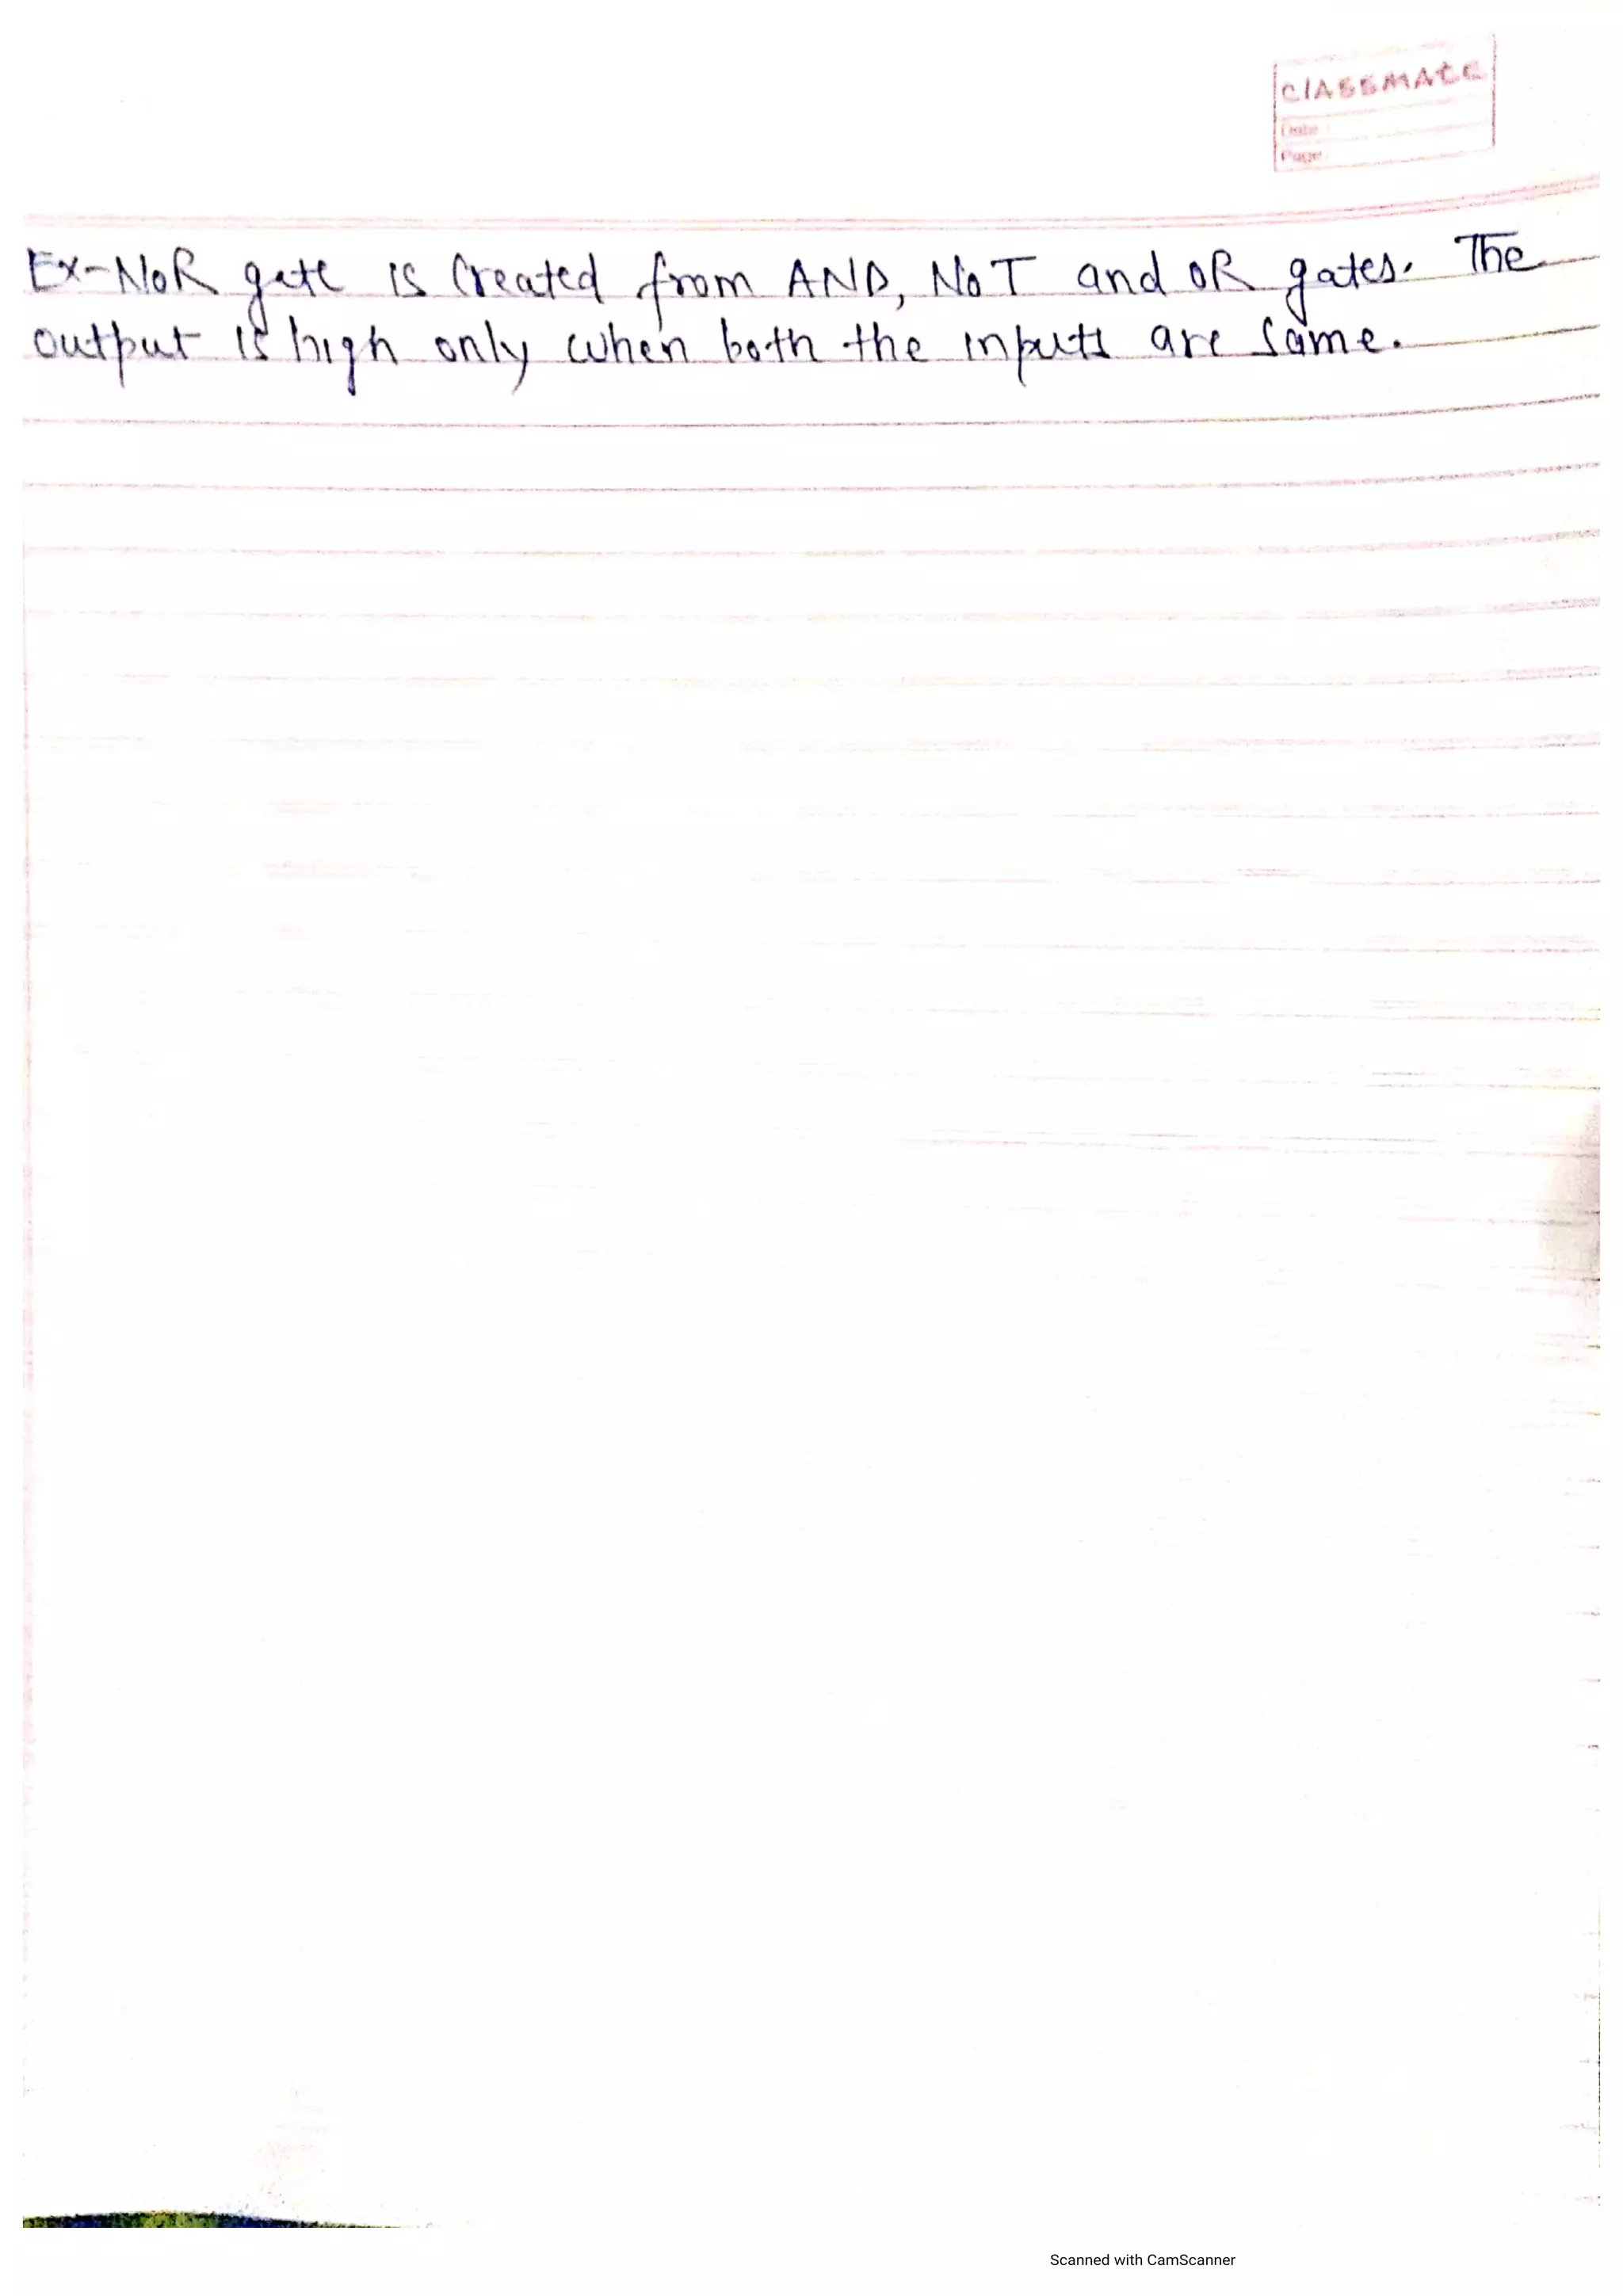 classmate
Date
Page
Ex-NOR gate is Created from AND, NOT and OR gates. The
output is high only when both the inputs are same.
Scanned with CamScanner